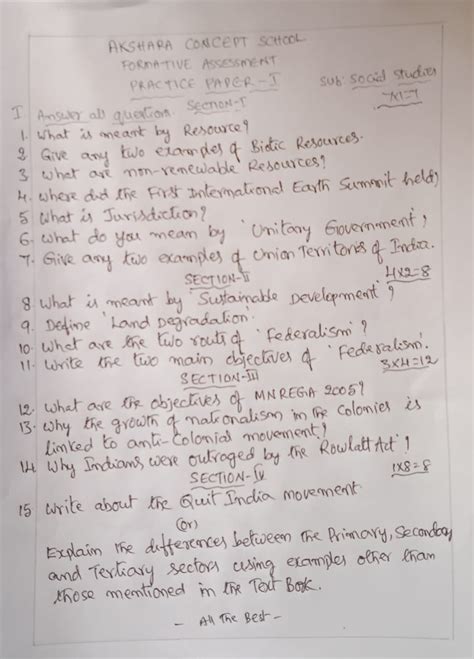 AKSHARA CONCEPT SCHOOL
FORMATIVE ASSESSMENT
PRACTICE PAPER-I
SUB: Social Studies
I Answer all questions. SECTION-I 7x1=7
1. What is meant by Resource?
2 Give any two examples of Biotic Resources.
3 What are non-renewable Resources?
4. Where did the First International Earth Summit held?
5 What is Jurisdiction?
6. What do you mean by 'Unitary Government'?
7. Give any two examples of Union Territories of India.
SECTION-II 4x2=8
8 What is meant by 'Sustainable Development'?
9. Define 'Land Degradation'.
10. What are the two routs of 'Federalism'?
11. Write the two main objectives of 'Federalism'.
SECTION-III 3x4=12
12. What are the objectives of MNREGA 2005?
13. Why the growth of nationalism in the Colonies is
linked to anti-Colonial movement?
14 Why Indians were outraged by the Rowlatt Act?
SECTION-IV 1x8=8
15 Write about the Quit India movement
(or)
Explain the differences between the Primary, Secondary
and Tertiary sectors using examples other than
those mentioned in the Text Book.
- All The Best -